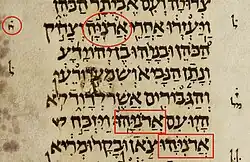 צרויה ועם אביתר הכהן
ויעזרו אחרי אדניה וצדוק
הכהן ובניהו בן יהוידע
ונתן הנביא ושמעי ורעי
והגבורים אשר לדוד לא
היו עם אדניהו ויזבח
אדניהו צאן ובקר ומריא